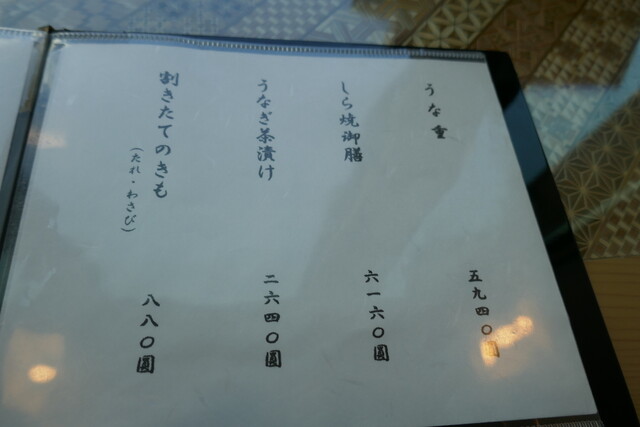 うな重
五九四〇圓
しら焼御膳
六一六〇圓
うなぎ茶漬け
二六四〇圓
割きたてのきも
（たれ・わさび）
八八〇圓